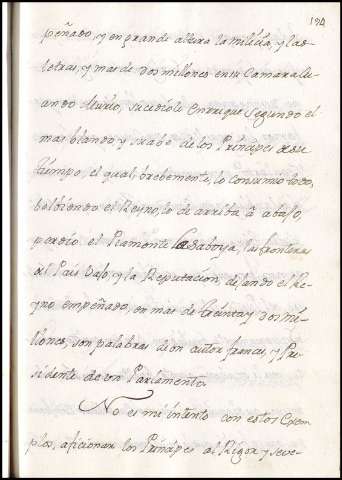 194
peñado, y en grande altura la milicia, y las
letras, y mas de dos millones en su Camara
ando murio, sucediole Enrrique segundo el
mas blando y suabe de los Principes de su
tiempo, el qual brebemente, lo consumio todo,
bolbiendo el Reyno, lo de arriba â abaxo,
perdio el Piamonte la Saboya, las fronteras
al Pais Vaxo, y la Reputacion, dejando el Re-
yno, empeñado, en mas de treinta y dos mi-
llones, son palabras de un autor frances, y Pre-
sidente de un Parlamento.
No es mi intento con estos Exem-
plos, aficionar los Principes al Rigor, y seve-